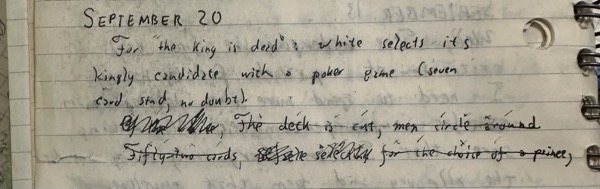 SEPTEMBER 20
For "the King is dead": white selects its
kingly candidate with a poker game (seven
card stud, no doubt).
The deck is cut, men circle around
Fifty-two cards, for the choice of a prince,